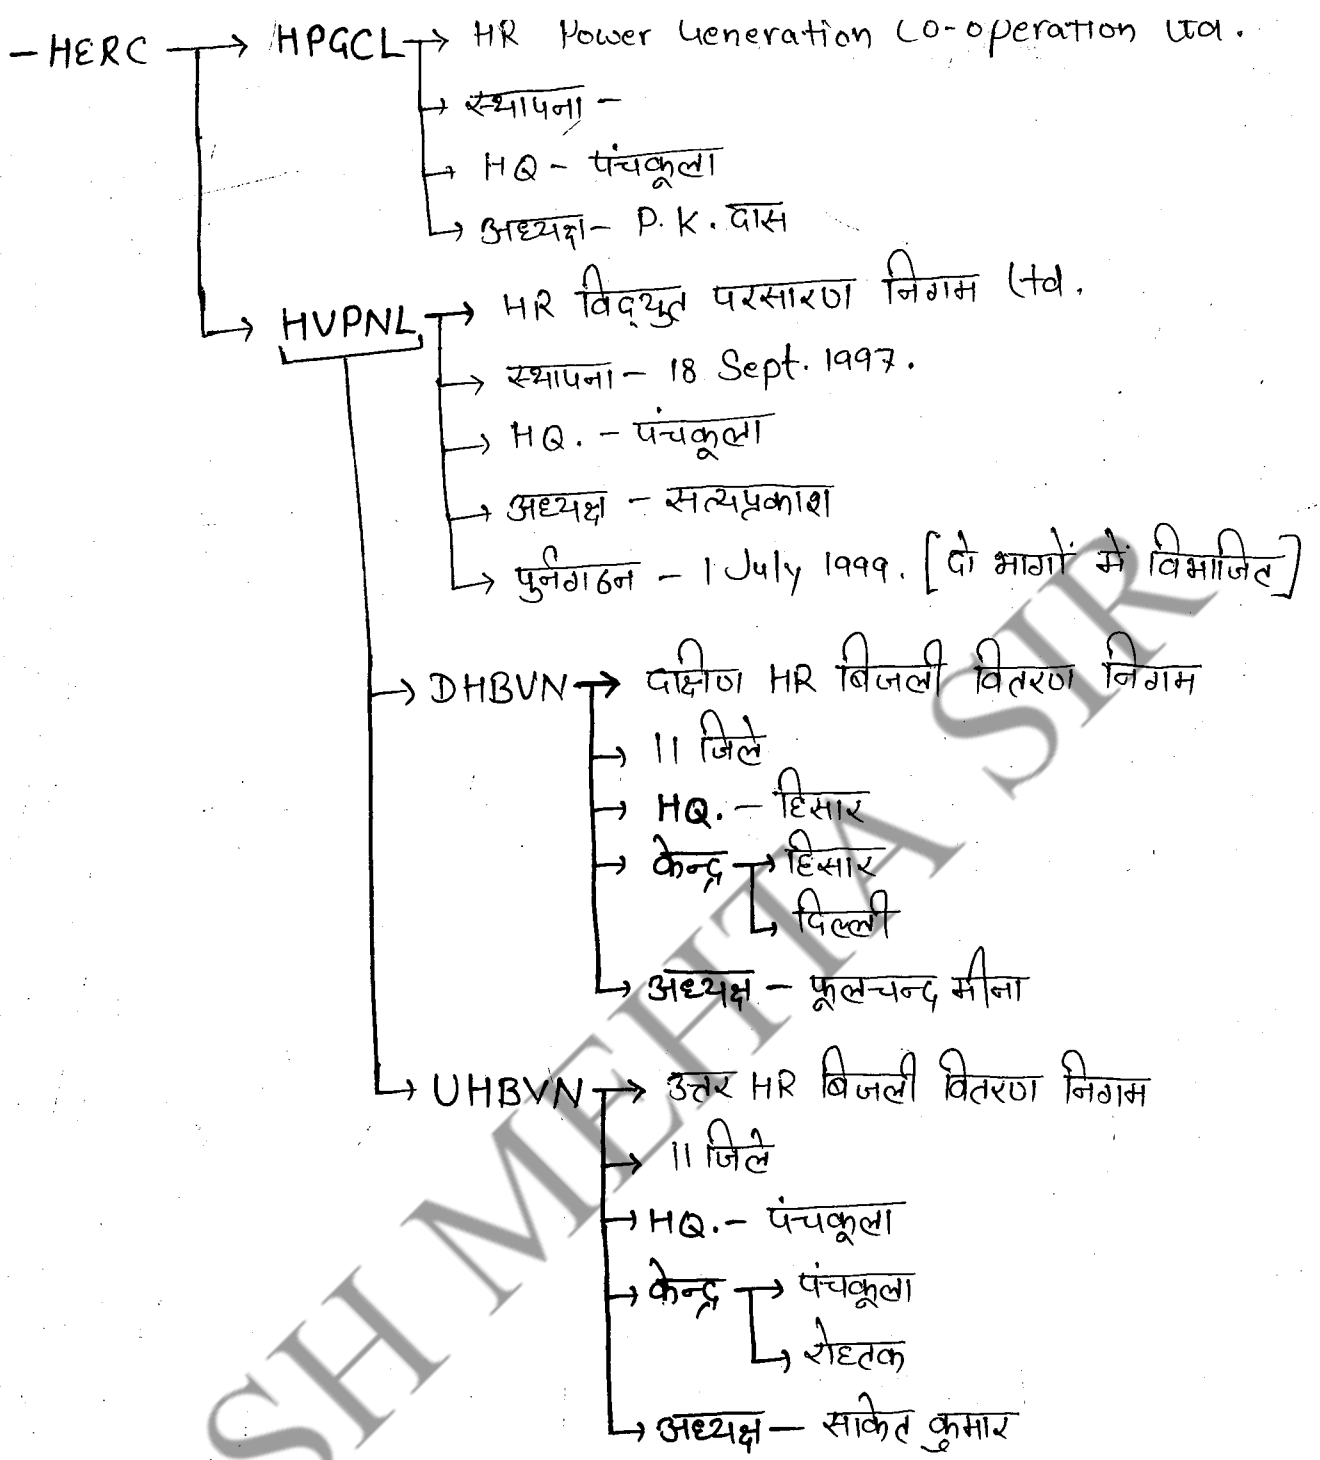 - HERC → HPGCL → HR Power Generation Co-operation Ltd.
→ स्थापना -
→ HQ - पंचकूला
→ अध्यक्ष - P. K. दास
→ HVPNL → HR विद्युत परसारण निगम Ltd.
→ स्थापना - 18 Sept. 1997.
→ HQ. - पंचकूला
→ अध्यक्ष - सत्यप्रकाश
→ पुर्नगठन - 1 July 1999. [दो भागों में विभाजित]
→ DHBVN → दक्षिण HR बिजली वितरण निगम
→ 11 जिले
→ HQ. - हिसार
→ केन्द्र → हिसार
→ दिल्ली
→ अध्यक्ष - फूलचन्द मीना
→ UHBVN → उत्तर HR बिजली वितरण निगम
→ 11 जिले
→ HQ. - पंचकूला
→ केन्द्र → पंचकूला
→ रोहतक
→ अध्यक्ष - साकेत कुमार
SH MEHTA SIR